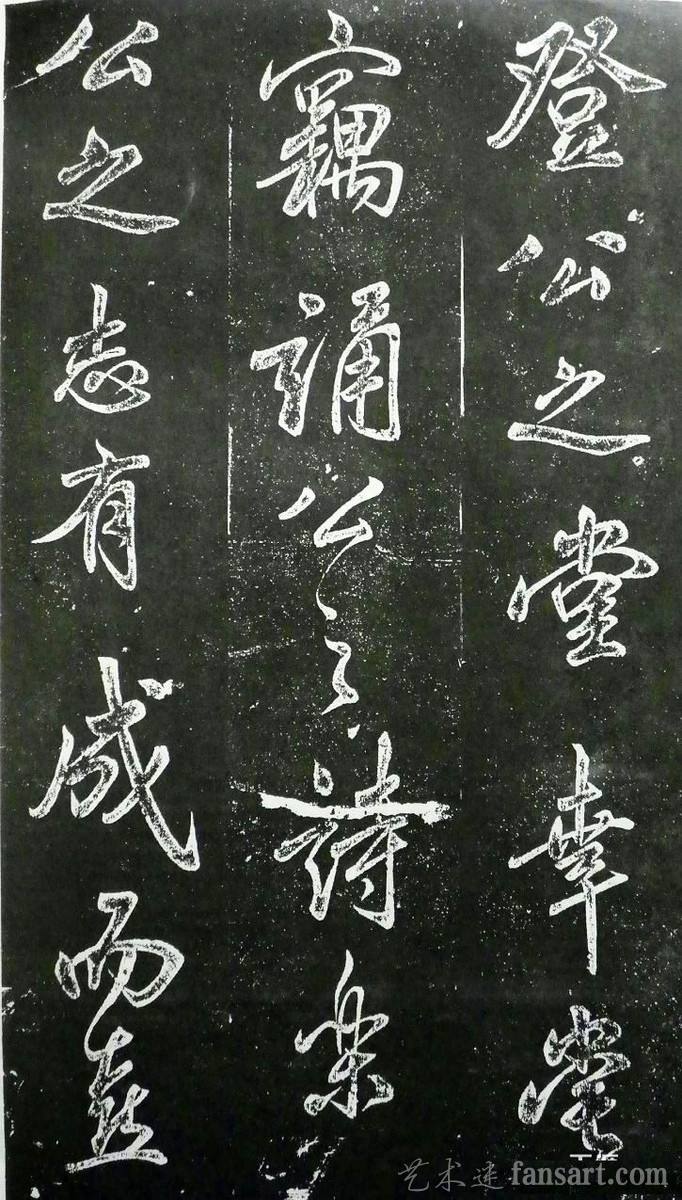 登公之堂幸嘗
竊誦公之詩樂
公之志有成而喜
艺术迷 fansart.com